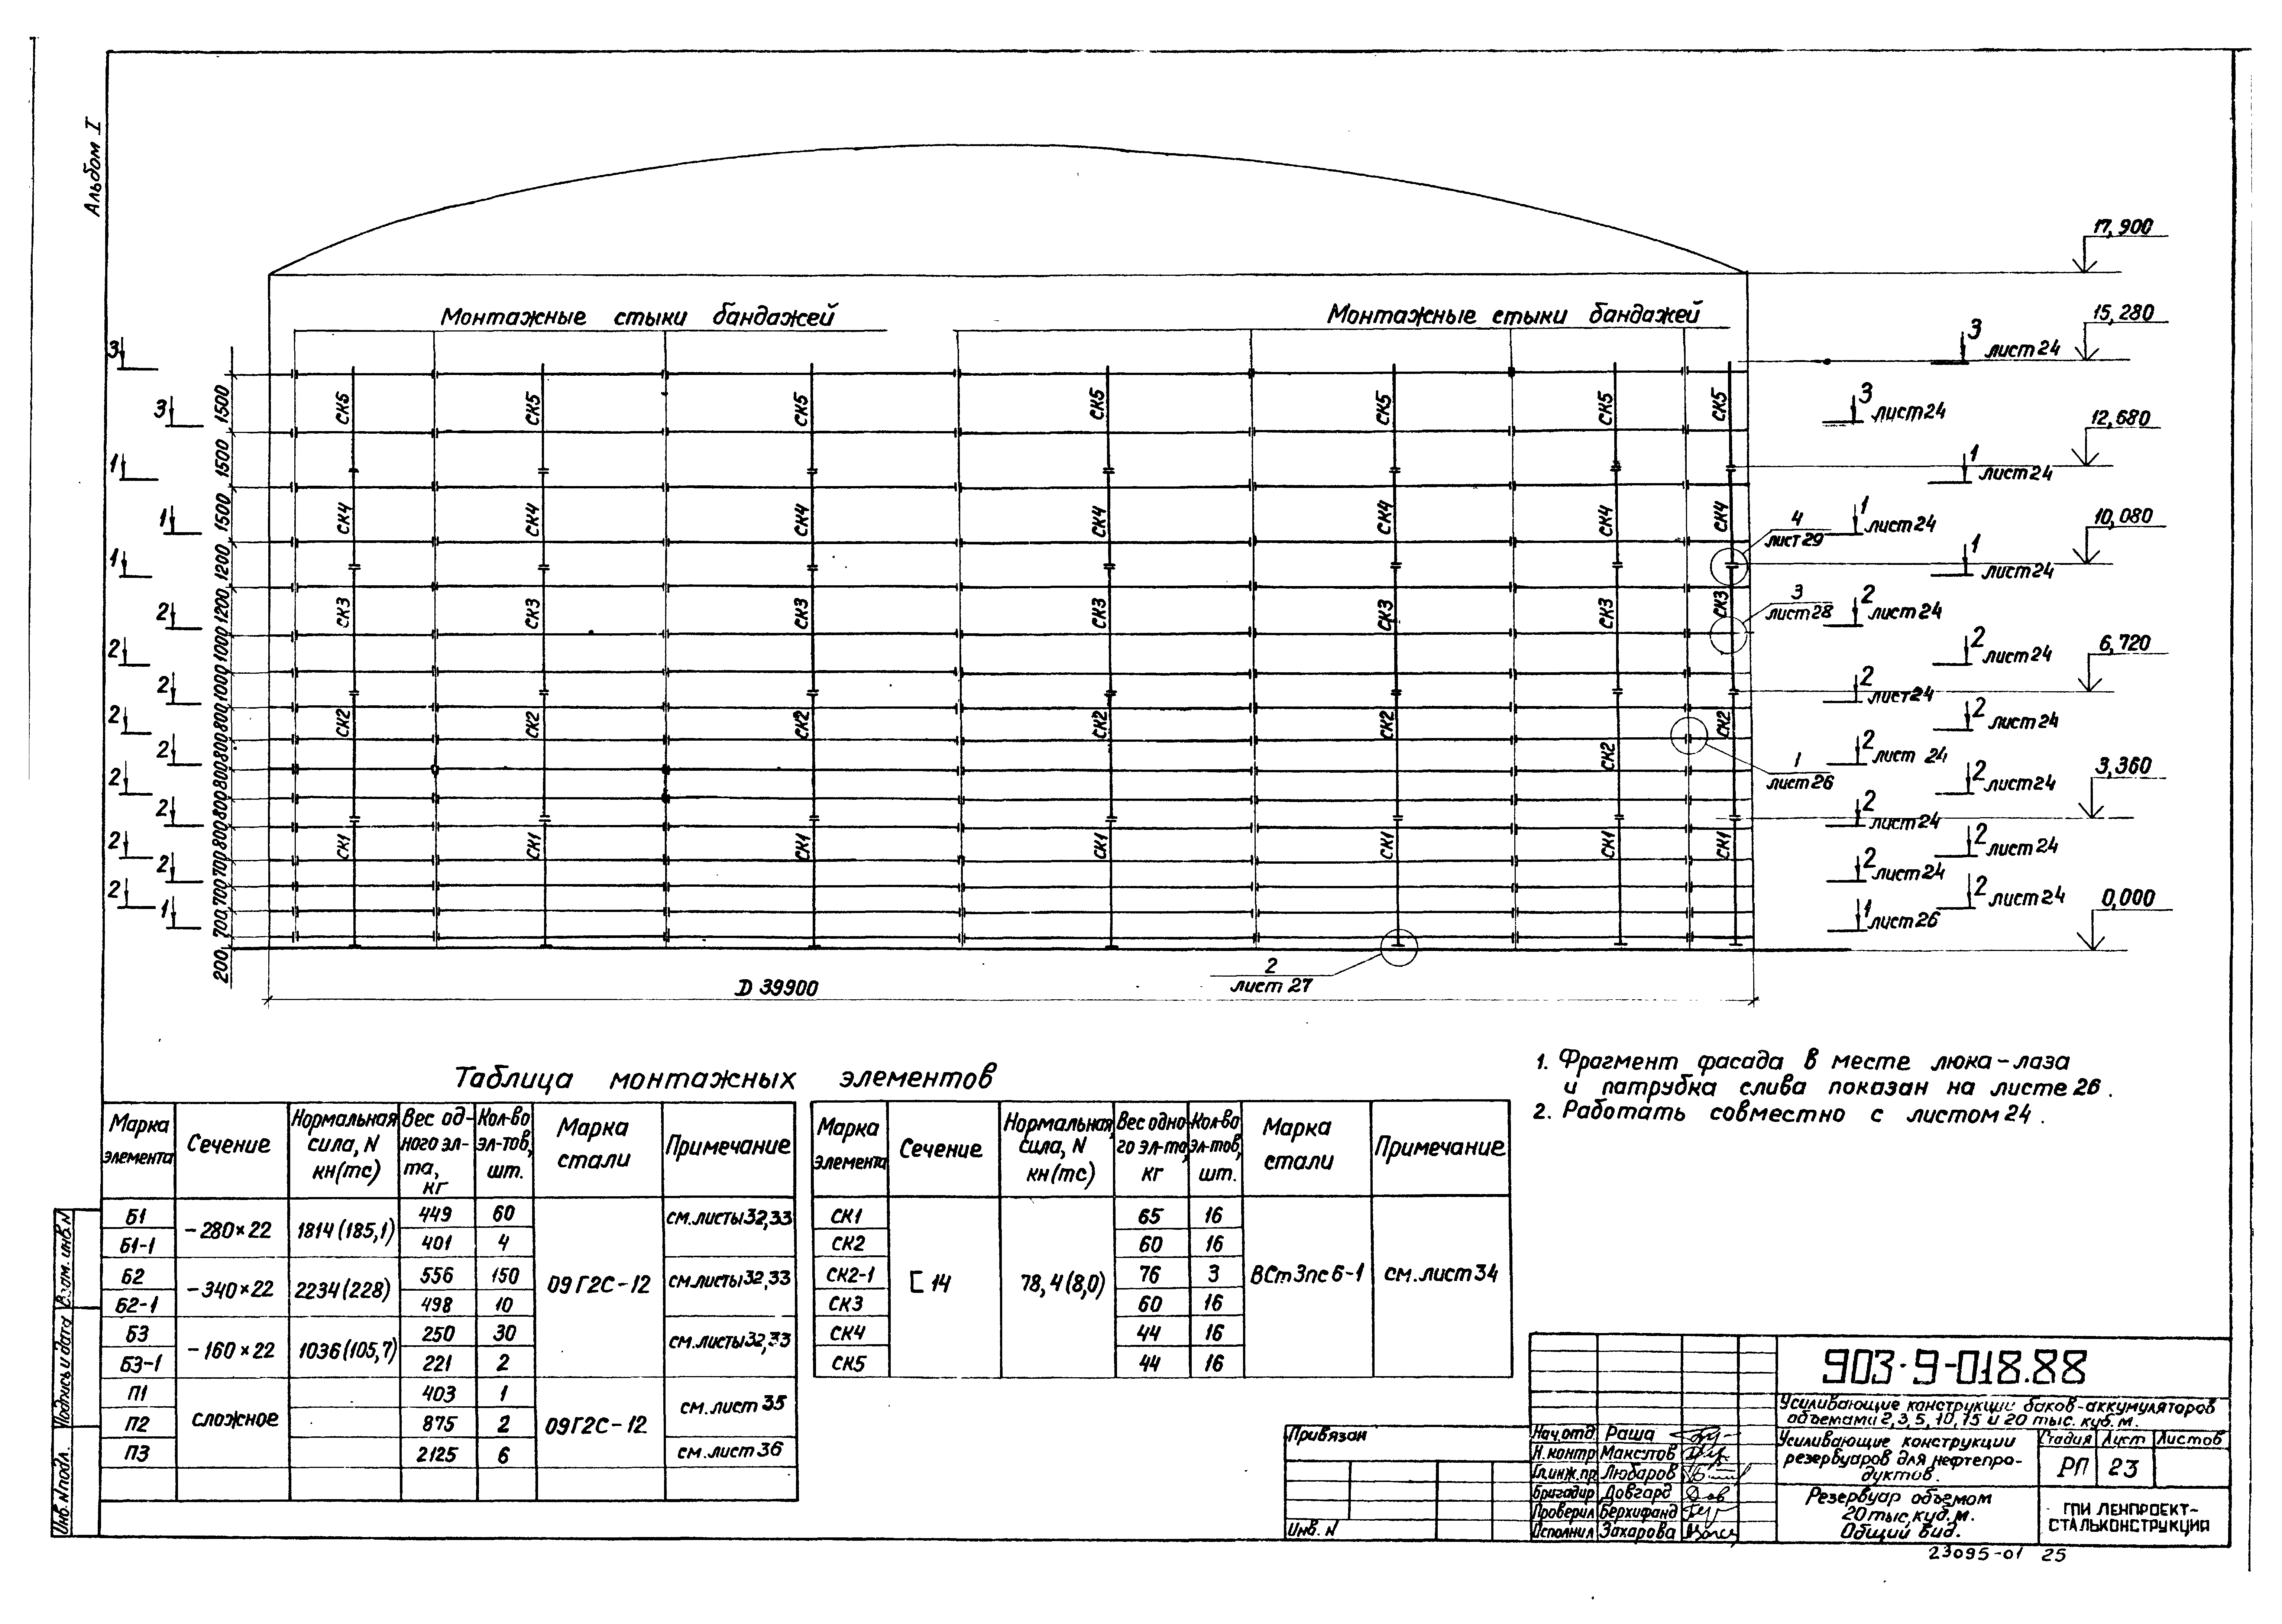 Альбом I
17,900
Монтажные стыки бандажей
Монтажные стыки бандажей
15,280
3
3
лист 24
СК5 СК5 СК5 СК5 СК5 СК5 СК5
1500
3
3
лист 24
12,680
1500
1
1
лист 24
СК4 СК4 СК4 СК4 СК4 СК4 СК4
1500
1
4
лист 29
1
лист 24
10,080
1200
1
1
лист 24
СК3 СК3 СК3 СК3 СК3 СК3 СК3
1200
2
3
лист 28
2
лист 24
1000
2
2
лист 24
6,720
1000
2
2
лист 24
СК2 СК2 СК2 СК2 СК2 СК2 СК2
800
2
2
лист 24
800
2
1
лист 26
2
лист 24
3,360
800
2
2
лист 24
800
2
2
лист 24
СК1 СК1 СК1 СК1 СК1 СК1 СК1
700
2
2
лист 24
700
2
2
лист 24
700
2
2
лист 24
0,000
1
1
лист 26
200
2
лист 27
D 39900
1. Фрагмент фасада в месте люка-лаза
и патрубка слива показан на листе 26.
2. Работать совместно с листом 24.
Таблица монтажных элементов
Марка элемента Сечение Нормальная сила, N кн(тс) Вес одного эл-та, кг Кол-во эл-тов, шт. Марка стали Примечание
Б1 -280×22 1814(185,1) 449 60 09Г2С-12 см.листы 32,33
Б1-1 401 4
Б2 -340×22 2234(228) 556 150 см.листы 32,33
Б2-1 498 10
Б3 -160×22 1036(105,7) 250 30 см.листы 32,33
Б3-1 221 2
П1 сложное 403 1 09Г2С-12 см.лист 35
П2 875 2
П3 2125 6 см.лист 36
Марка элемента Сечение Нормальная сила, N кн(тс) Вес одного эл-та, кг Кол-во эл-тов, шт. Марка стали Примечание
СК1 [ 14 78,4(8,0) 65 16 ВСт3пс6-1 см.лист 34
СК2 60 16
СК2-1 76 3
СК3 60 16
СК4 44 16
СК5 44 16
Взам. инв. N
Подпись и дата
Инв. N подл.
Привязан
Инв. N
903-9-018.88
Усиливающие конструкции баков-аккумуляторов
объемами 2,3,5,10,15 и 20 тыс. куб.м.
Нач.отд Раша
Н.контр Максутов
Гл.инж.пр Любаров
Бригадир Довгард
Проверил Берхифанд
Исполнил Захарова
Усиливающие конструкции
резервуаров для нефтепро-
дуктов.
Стадия Лист Листов
РП 23
Резервуар объемом
20 тыс.куб.м.
Общий вид.
ГПИ ЛЕНПРОЕКТ-
СТАЛЬКОНСТРУКЦИЯ
23095-01 25